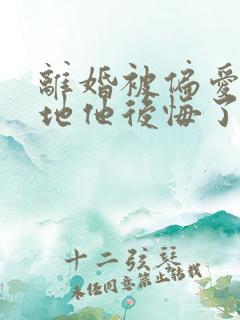 離婚被偏愛
地他後悔了
十二弦琴
未經同意禁止轉載